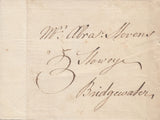 Mrs Abra: Stevens
3 Stowey
Bridgewater